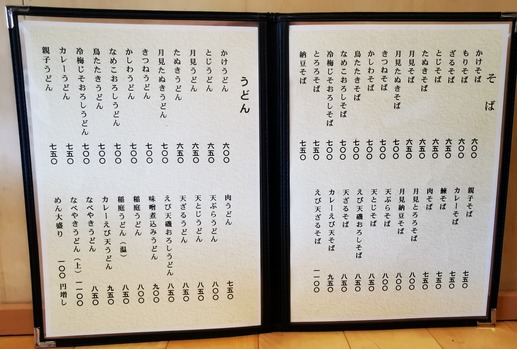 そば
かけそば 六〇〇
もりそば 六〇〇
ざるそば 六五〇
とじそば 六五〇
たぬきそば 六五〇
月見そば 六五〇
月見たぬきそば 七〇〇
きつねそば 七〇〇
かしわそば 七〇〇
鳥たたきそば 七〇〇
なめこおろしそば 七〇〇
冷梅じそおろしそば 七〇〇
とろろそば 七五〇
納豆そば 七五〇
親子そば 七五〇
カレーそば 七五〇
鰊そば 七五〇
肉そば 七五〇
月見とろろそば 八〇〇
月見納豆そば 八〇〇
天ぷらそば 八〇〇
天とじそば 八五〇
えび天磯おろしそば 八五〇
天ざるそば 八五〇
カレーえび天そば 九五〇
えび天ざるそば 一一〇〇
うどん
かけうどん 六〇〇
とじうどん 六五〇
月見うどん 六五〇
たぬきうどん 六五〇
月見たぬきうどん 七〇〇
きつねうどん 七〇〇
かしわうどん 七〇〇
なめこおろしうどん 七〇〇
鳥たたきうどん 七〇〇
冷梅じそおろしうどん 七〇〇
カレーうどん 七五〇
親子うどん 七五〇
肉うどん 七五〇
天ぷらうどん 八〇〇
天とじうどん 八五〇
天ざるうどん 八五〇
えび天磯おろしうどん 八五〇
味噌煮込みうどん 九〇〇
稲庭うどん 八〇〇
稲庭うどん（温） 八五〇
カレーえび天うどん 九五〇
なべやきうどん 八五〇
なべやきうどん（上） 一一〇〇
めん大盛り 一〇〇円増し